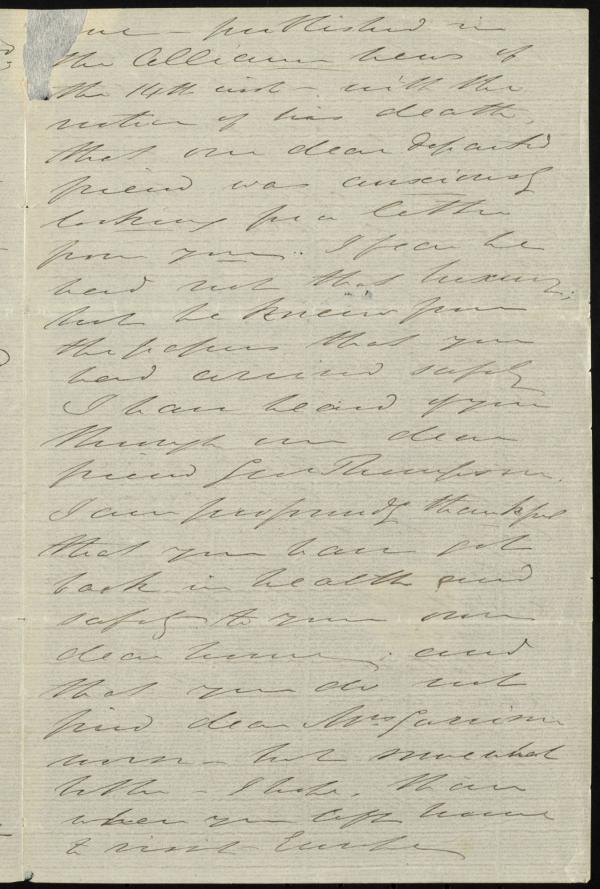 one – published in
the Alliance News of
the 14th inst – with the
notice of his death,
that our dear departed
friend was anxiously
looking for a letter
from you. I fear he
had not that luxury;
but he knew from
the papers that you
had arrived safely
I have heard of you
through our dear
friend Geo Thompson.
I am profoundly thankful
that you have got
back in health and
safety to your own
dear home; and
that you do not
find dear Mrs Garrison
worse – but somewhat
better – I hope, than
when you left home
to visit Europe